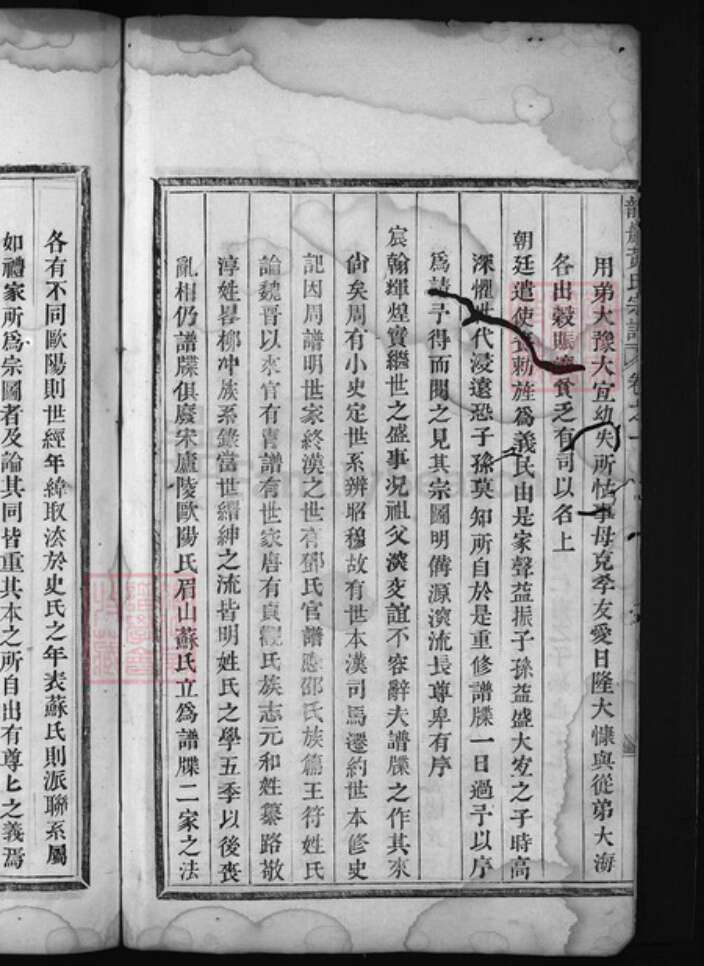 氏宗譜 卷之一
用弟大豫大宜幼失所怙事母克孝友愛日隆大慷與從弟大海
各出穀賑濟貧乏有司以名上
朝廷遣使賫勅旌為義民由是家聲益振子孫益盛大㝎之子時高
深懼世代浸遠恐子孫莫知所自於是重修譜牒一日過予以序
為請予得而閱之見其宗圖明備源流長尊卑有序
宸翰輝煌實繼世之盛事况祖父演交誼不容辭夫譜牒之作其來
尙矣周有小史定世系辨昭穆故有世本漢司馬遷約世本修史
記因周譜明世家終漢之世有鄧氏官譜應邵氏族篇王符姓氏
論魏晉以來官有簿譜有世家唐有貞觀氏族志元和姓纂路敬
淳姓畧柳冲族系錄當世縉紳之流皆明姓氏之學五季以後喪
亂相仍譜牒俱廢宋廬陵歐陽氏眉山蘇氏立為譜牒二家之法
各有不同歐陽則世經年緯取法於史氏之年表蘇氏則派聯系屬
如禮家所為宗圖者及論其同皆重其本之所自出有尊匕之義焉